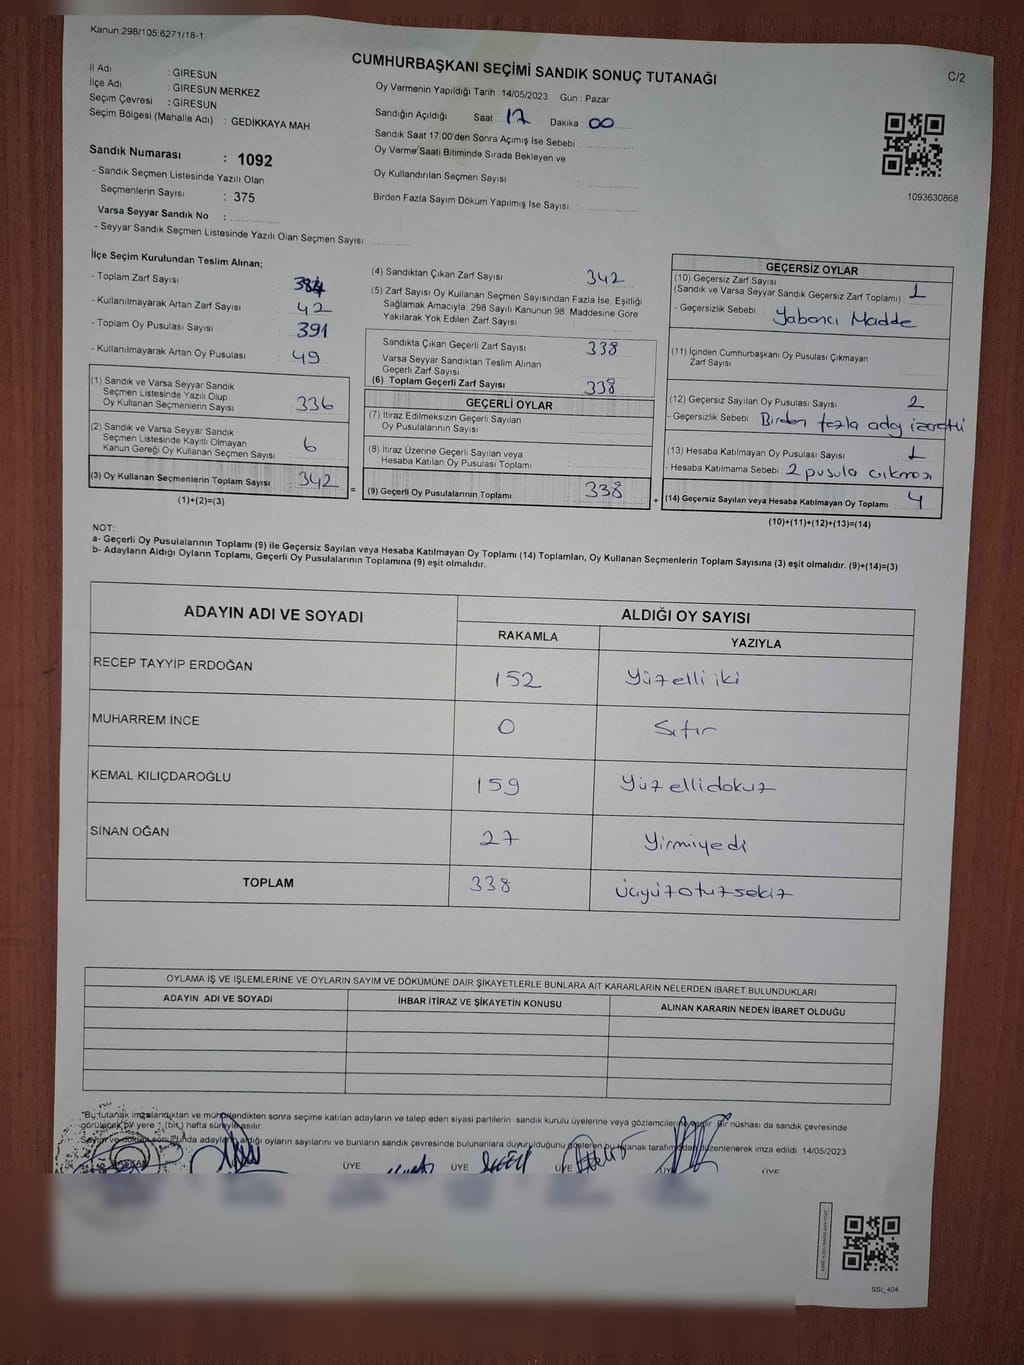 Kanun:298/105,6271/18-1
CUMHURBAŞKANI SEÇİMİ SANDIK SONUÇ TUTANAĞI
C/2
İl Adı : GİRESUN
İlçe Adı : GİRESUN MERKEZ
Seçim Çevresi : GİRESUN
Seçim Bölgesi (Mahalle Adı) : GEDİKKAYA MAH.
Sandık Numarası : 1092
- Sandık Seçmen Listesinde Yazılı Olan
Seçmenlerin Sayısı : 375
Varsa Seyyar Sandık No :
- Seyyar Sandık Seçmen Listesinde Yazılı Olan Seçmen Sayısı:
Oy Vermenin Yapıldığı Tarih :14/05/2023 Gün : Pazar
Sandığın Açıldığı Saat 17 Dakika : 00
Sandık Saat 17:00'den Sonra Açımış İse Sebebi :
Oy Verme Saati Bitiminde Sırada Bekleyen ve
Oy Kullandırılan Seçmen Sayısı :
Birden Fazla Sayım Döküm Yapılmış İse Sayısı :
1093630868
İlçe Seçim Kurulundan Teslim Alınan;
- Toplam Zarf Sayısı 384
- Kullanılmayarak Artan Zarf Sayısı 42
- Toplam Oy Pusulası Sayısı 391
- Kullanılmayarak Artan Oy Pusulası 49
(1) Sandık ve Varsa Seyyar Sandık
Seçmen Listesinde Yazılı Olup
Oy Kullanan Seçmenlerin Sayısı 336
(2) Sandık ve Varsa Seyyar Sandık
Seçmen Listesinde Kayıtlı Olmayan
Kanun Gereği Oy Kullanan Seçmen Sayısı 6
(3) Oy Kullanan Seçmenlerin Toplam Sayısı 342
(1)+(2)=(3)
(4) Sandıktan Çıkan Zarf Sayısı 342
(5) Zarf Sayısı Oy Kullanan Seçmen Sayısından Fazla İse, Eşitliği
Sağlamak Amacıyla, 298 Sayılı Kanunun 98. Maddesine Göre
Yakılarak Yok Edilen Zarf Sayısı
Sandıkta Çıkan Geçerli Zarf Sayısı 338
Varsa Seyyar Sandıktan Teslim Alınan
Geçerli Zarf Sayısı
(6) Toplam Geçerli Zarf Sayısı 338
GEÇERLİ OYLAR
(7) İtiraz Edilmeksizin Geçerli Sayılan
Oy Pusulalarının Sayısı
(8) İtiraz Üzerine Geçerli Sayılan veya
Hesaba Katılan Oy Pusulası Toplamı
= (9) Geçerli Oy Pusulalarının Toplamı 338
GEÇERSİZ OYLAR
(10) Geçersiz Zarf Sayısı
(Sandık ve Varsa Seyyar Sandık Geçersiz Zarf Toplamı) 1
- Geçersizlik Sebebi : Yabancı Madde
(11) İçinden Cumhurbaşkanı Oy Pusulası Çıkmayan
Zarf Sayısı
(12) Geçersiz Sayılan Oy Pusulası Sayısı 2
- Geçersizlik Sebebi : Birden fazla aday işaretli
(13) Hesaba Katılmayan Oy Pusulası Sayısı 1
- Hesaba Katılmama Sebebi : 2 pusula çıkması
+ (14) Geçersiz Sayılan veya Hesaba Katılmayan Oy Toplamı 4
(10)+(11)+(12)+(13)=(14)
NOT:
a- Geçerli Oy Pusulalarının Toplamı (9) ile Geçersiz Sayılan veya Hesaba Katılmayan Oy Toplamı (14) Toplamları, Oy Kullanan Seçmenlerin Toplam Sayısına (3) eşit olmalıdır. (9)+(14)=(3)
b- Adayların Aldığı Oyların Toplamı, Geçerli Oy Pusulalarının Toplamına (9) eşit olmalıdır.
ADAYIN ADI VE SOYADI ALDIĞI OY SAYISI
RAKAMLA YAZIYLA
RECEP TAYYİP ERDOĞAN 152 Yüzelliiki
MUHARREM İNCE 0 Sıfır
KEMAL KILIÇDAROĞLU 159 Yüzellidokuz
SİNAN OĞAN 27 Yirmiyedi
TOPLAM 338 Üçyüzotuzsekiz
OYLAMA İŞ VE İŞLEMLERİNE VE OYLARIN SAYIM VE DÖKÜMÜNE DAİR ŞİKAYETLERLE BUNLARA AİT KARARLARIN NELERDEN İBARET BULUNDUKLARI
ADAYIN ADI VE SOYADI İHBAR İTİRAZ VE ŞİKAYETİN KONUSU ALINAN KARARIN NEDEN İBARET OLDUĞU
*Bu tutanak imzalandıktan ve mühürlendikten sonra seçime katılan adayların ve talep eden siyasi partilerin sandık kurulu üyelerine veya gözlemcilerine verilir. Bir nüshası da sandık çevresinde
görülecek bir yere 1 (bir) hafta süreyle asılır.
Sayım ve döküm sonucunda adayların aldığı oyların sayılarını ve bunların sandık çevresinde bulunanlara duyurulduğunu gösteren bu tutanak tarafımızdan düzenlenerek imza edildi. 14/05/2023
BAŞKAN ÜYE ÜYE ÜYE ÜYE ÜYE
SSI_404